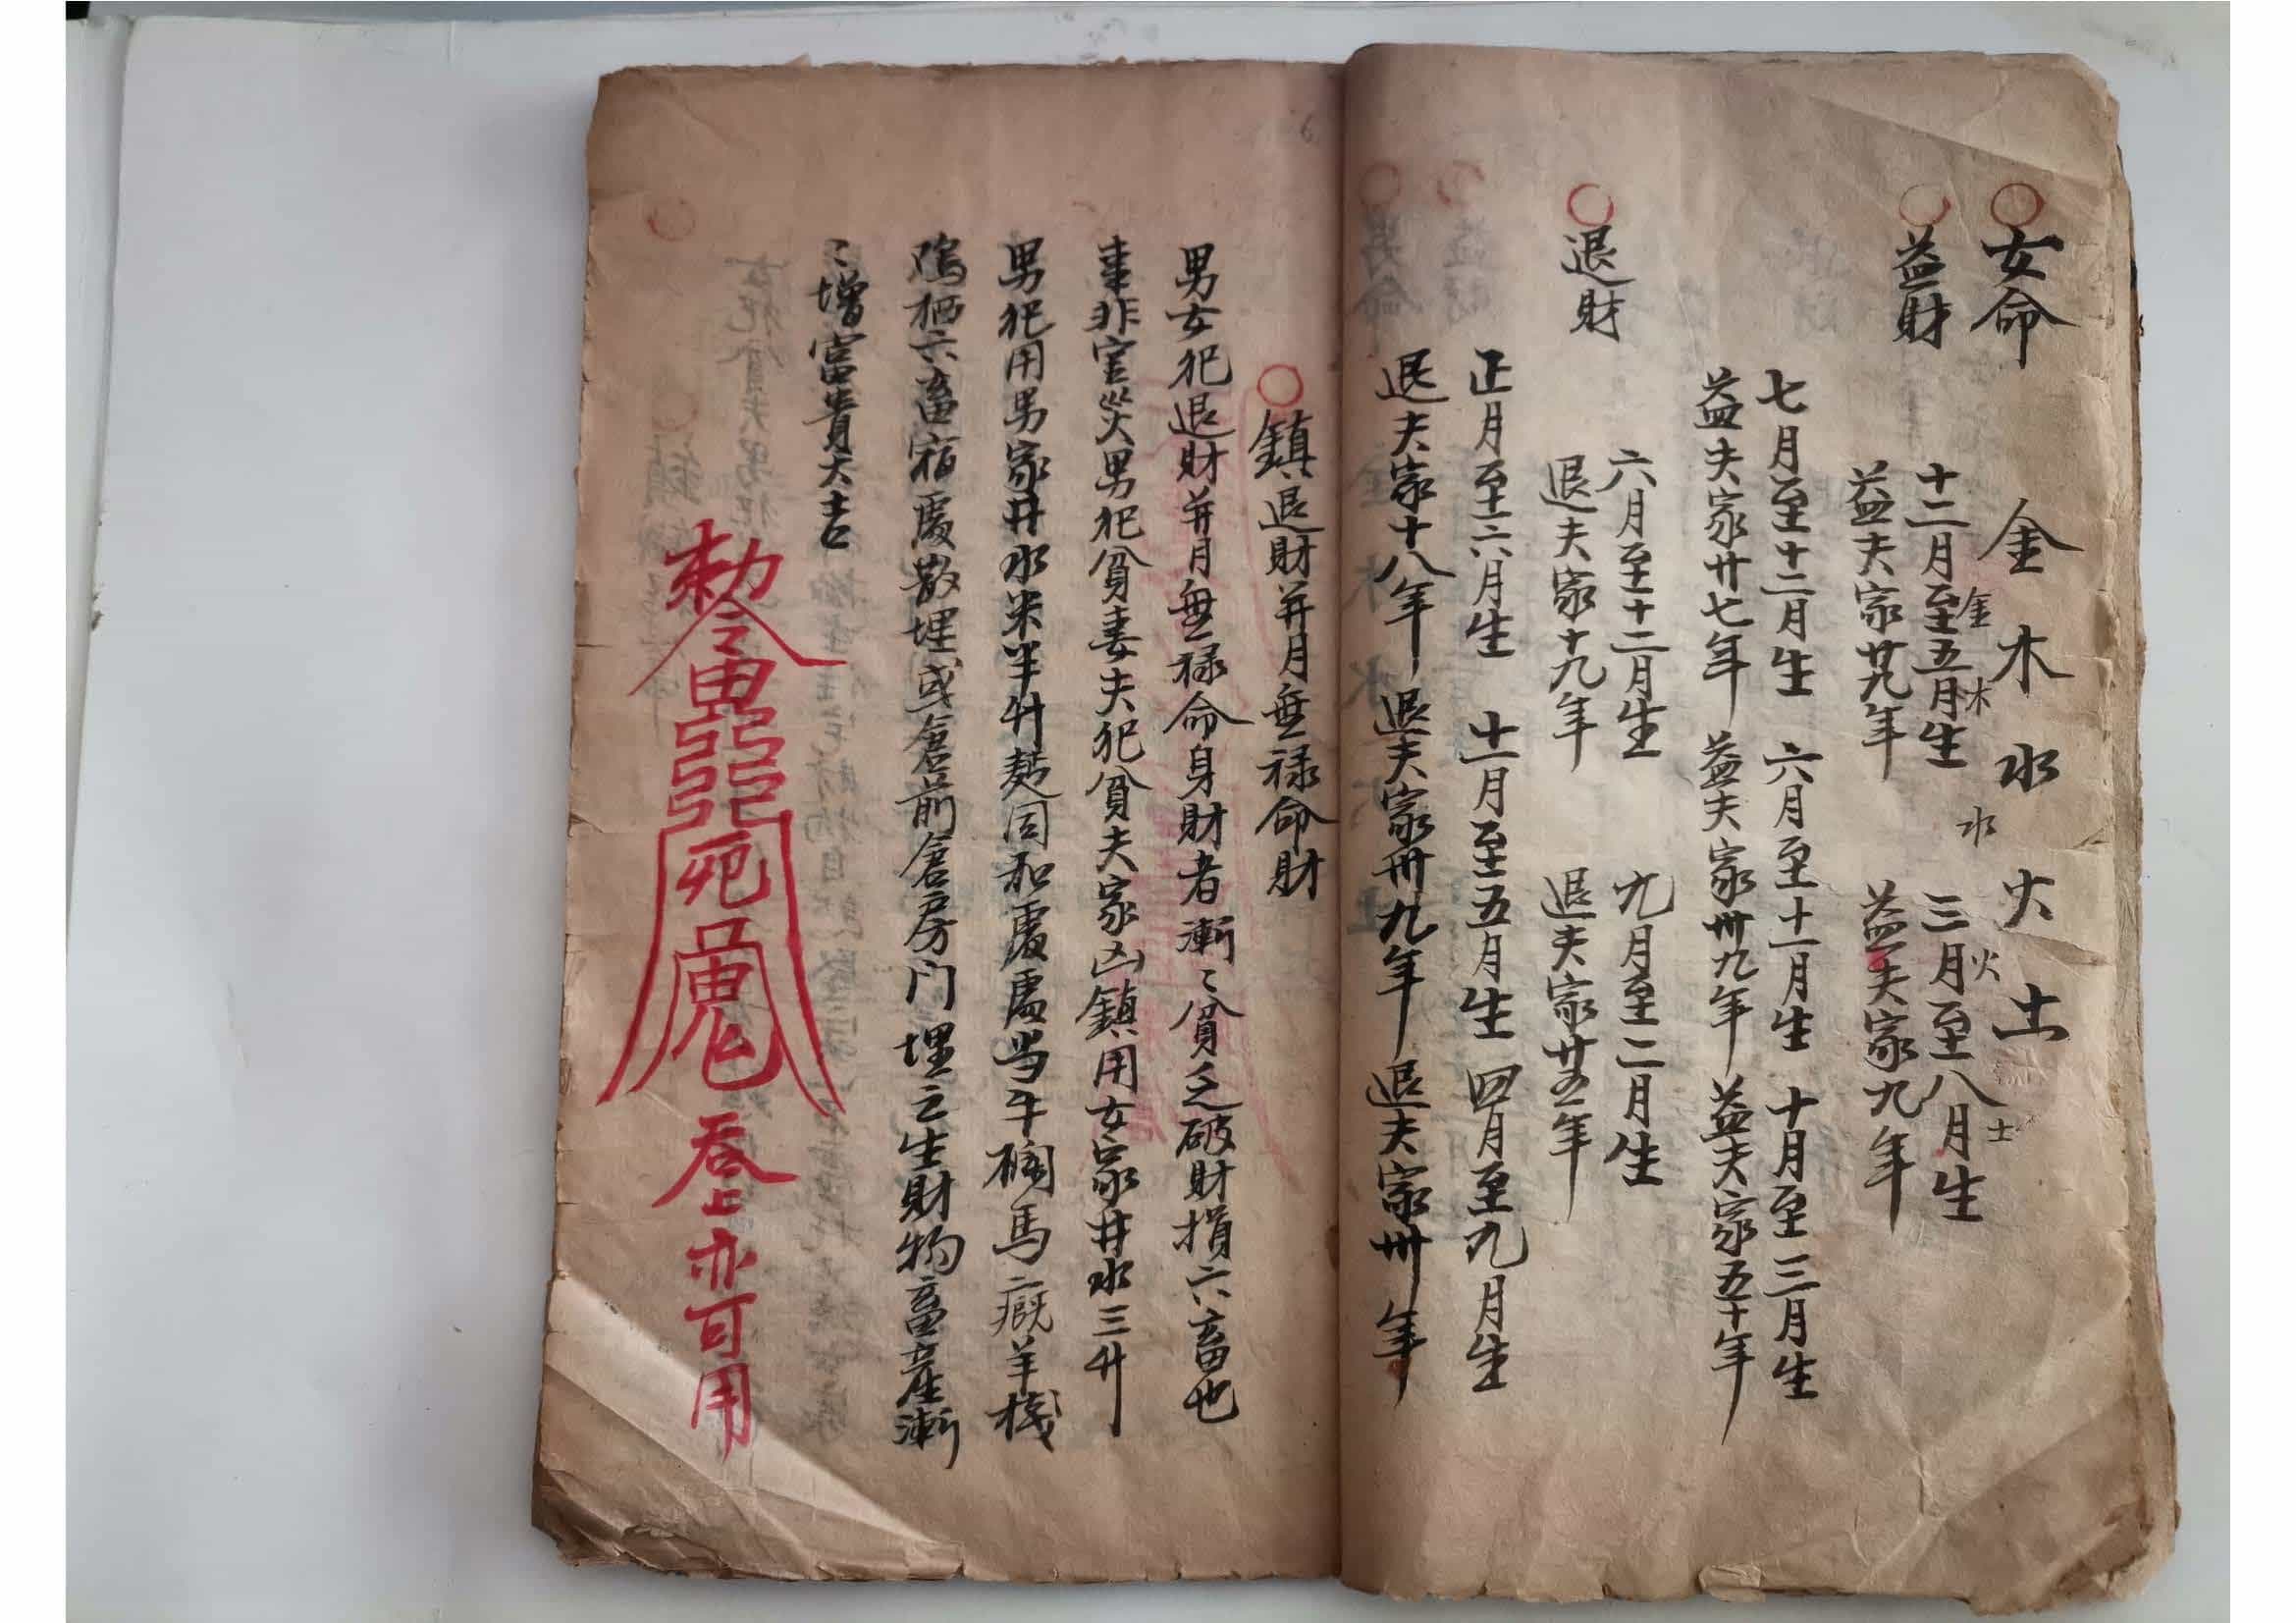 女命 金木水火土
金 木 水 火 土
益財 十二月至五月生 三月至八月生
益夫家廿九年 益夫家九年
七月至十二月生 六月至十一月生 十月至三月生
益夫家廿七年 益夫家卅九年 益夫家五十年
退財 六月至十二月生 九月至二月生
退夫家十九年 退夫家廿五年
正月至六月生 十一月至五月生 四月至九月生
退夫家十八年 退夫家卅九年 退夫家卅年
鎮退財并月無禄命財
男女犯退財并月無禄命身財者漸〻貧乏破財損六畜也
事非官災男犯貧妻夫犯貧夫家凶鎮用女家井水三升
男犯用男家井水米半升麺同和處處当牛欄馬廐羊棧
鳮栖六畜宿處散埋或倉前倉房门埋之生財物畜産漸
〻增富貴大吉
勅令
死
吞上亦可用
6